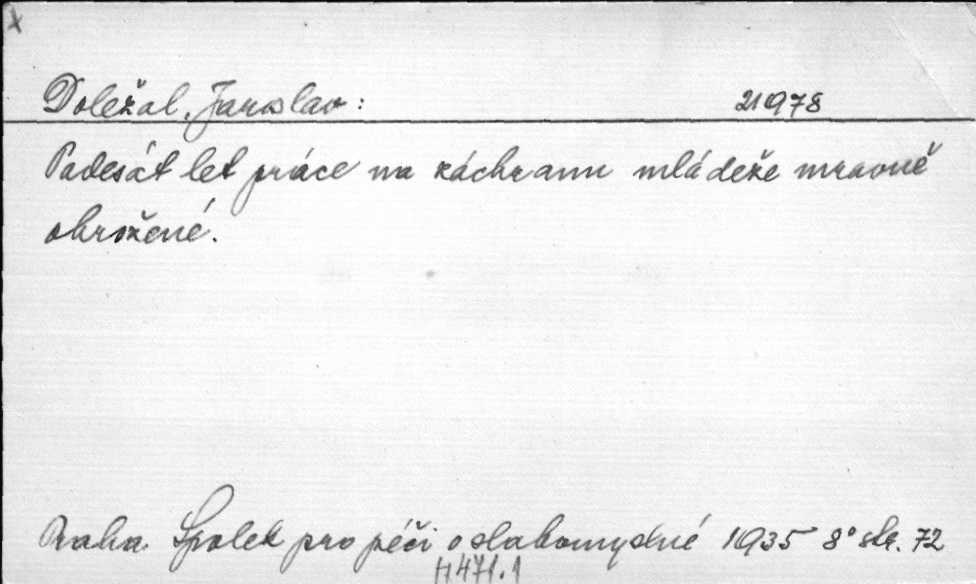 x
Doležal, Jaroslav: 21978
Padesát let práce na záchranu mládeže mravně
ohrožené.
Praha Spolek pro péči o slabomyslné 1935 8° str. 72
H 471.1